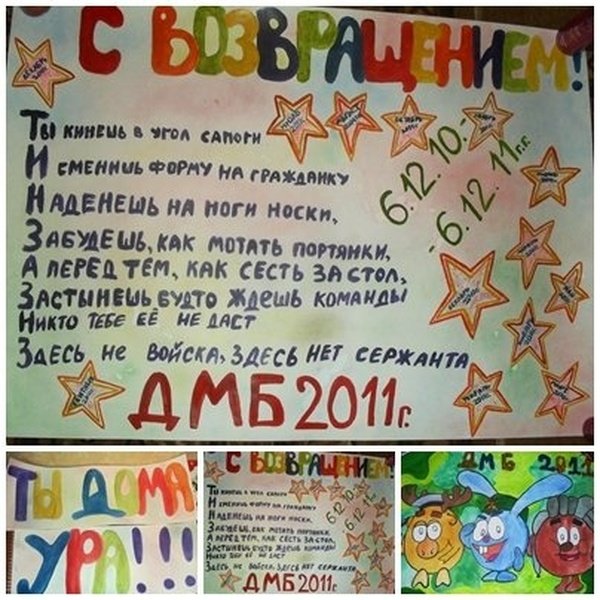 С ВОЗВРАЩЕНИЕМ!
ДЕКАБРЬ
ТЫ КИНЕШЬ В УГОЛ САПОГИ
И СМЕНИШЬ ФОРМУ НА ГРАЖДАНКУ
НАДЕНЕШЬ НА НОГИ НОСКИ,
ЗАБУДЕШЬ, КАК МОТАТЬ ПОРТЯНКИ,
А ПЕРЕД ТЕМ, КАК СЕСТЬ ЗА СТОЛ,
ЗАСТЫНЕШЬ БУДТО ЖДЕШЬ КОМАНДЫ
НИКТО ТЕБЕ ЕЁ НЕ ДАСТ
ЗДЕСЬ НЕ ВОЙСКА, ЗДЕСЬ НЕТ СЕРЖАНТА
6.12.10.-
-6.12.11 г.г.
ДМБ 2011г.
ТЫ ДОМА
УРА!!!
С ВОЗВРАЩЕНИЕМ!
ТЫ КИНЕШЬ В УГОЛ САПОГИ
И СМЕНИШЬ ФОРМУ НА ГРАЖДАНКУ
НАДЕНЕШЬ НА НОГИ НОСКИ,
ЗАБУДЕШЬ, КАК МОТАТЬ ПОРТЯНКИ,
А ПЕРЕД ТЕМ, КАК СЕСТЬ ЗА СТОЛ,
ЗАСТЫНЕШЬ БУДТО ЖДЕШЬ КОМАНДЫ
НИКТО ТЕБЕ ЕЁ НЕ ДАСТ
ЗДЕСЬ НЕ ВОЙСКА, ЗДЕСЬ НЕТ СЕРЖАНТА
6.12.10.-
-6.12.11
ДМБ 2011г.
ДМБ 2011